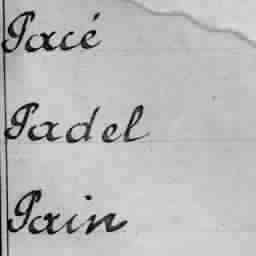 Pacé
Padel
Pain